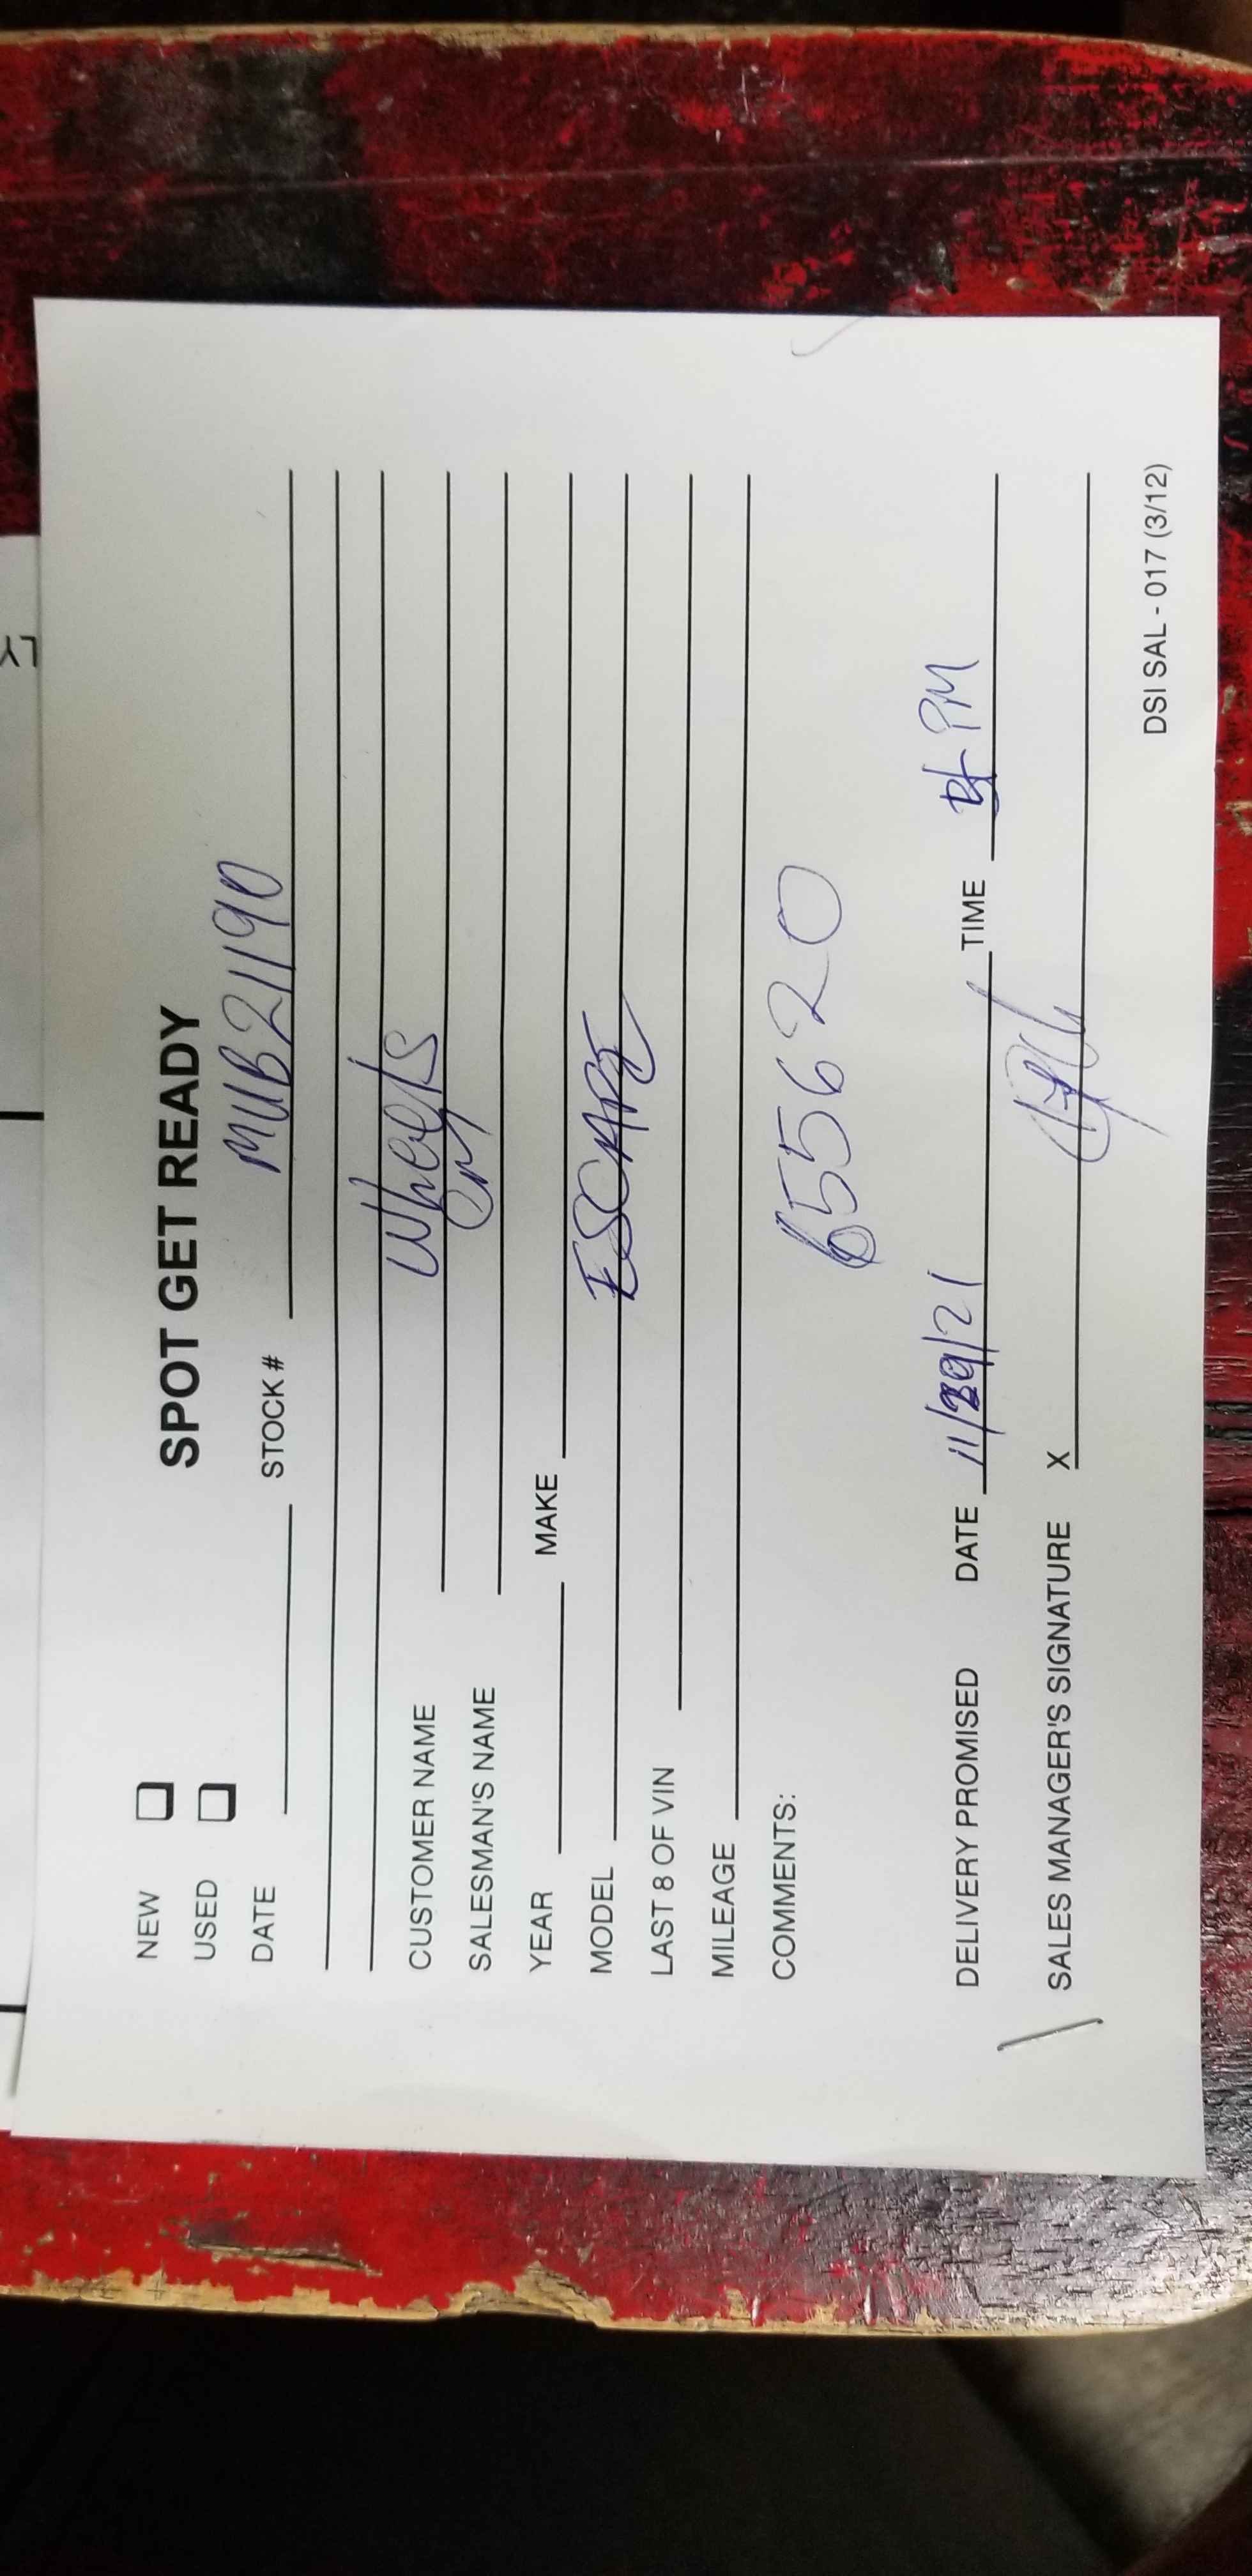 LY
NEW
SPOT GET READY
USED
DATE STOCK # MUB21190
CUSTOMER NAME Wheels
SALESMAN'S NAME
YEAR MAKE
MODEL ESCAPE
LAST 8 OF VIN
MILEAGE
COMMENTS: 655620
DELIVERY PROMISED DATE 11/29/21 TIME PM
SALES MANAGER'S SIGNATURE X
DSI SAL - 017 (3/12)